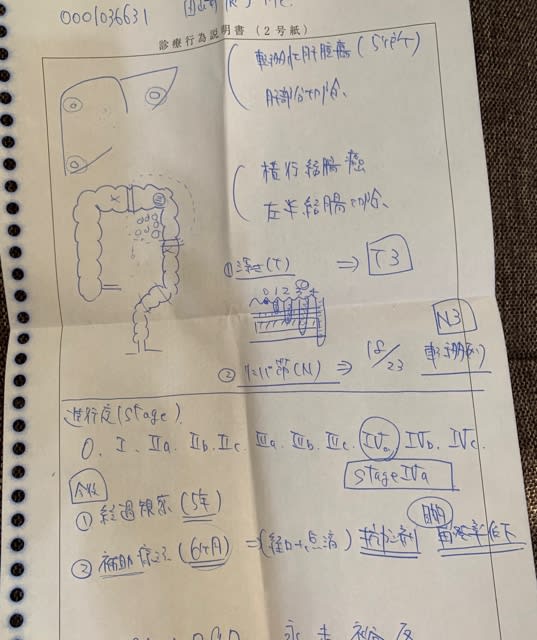 0001036631
診療行為説明書（2号紙）
転移性肝腫瘍(5ヶ所)
肝部分切除、
横行結腸癌
左半結腸切除、
① 深さ(T) ⇒ T3
0 1 2 3 4
N3
② リンパ節(N) ⇒ 18/23 転移あり
進行度(Stage)
0. I. IIa. IIb. IIc. IIIa. IIIb. IIIc. IVa. IVb. IVc.
Stage IVa
今後
① 経過観察 (5年)
② 補助療法 (6ヶ月) ⇒ (経口+点滴) 抗がん剤 再発率低下